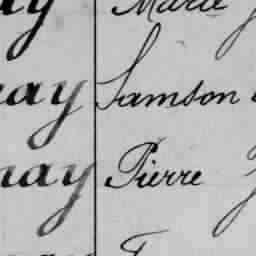 ay Marie
nay Samson
nay Pierre